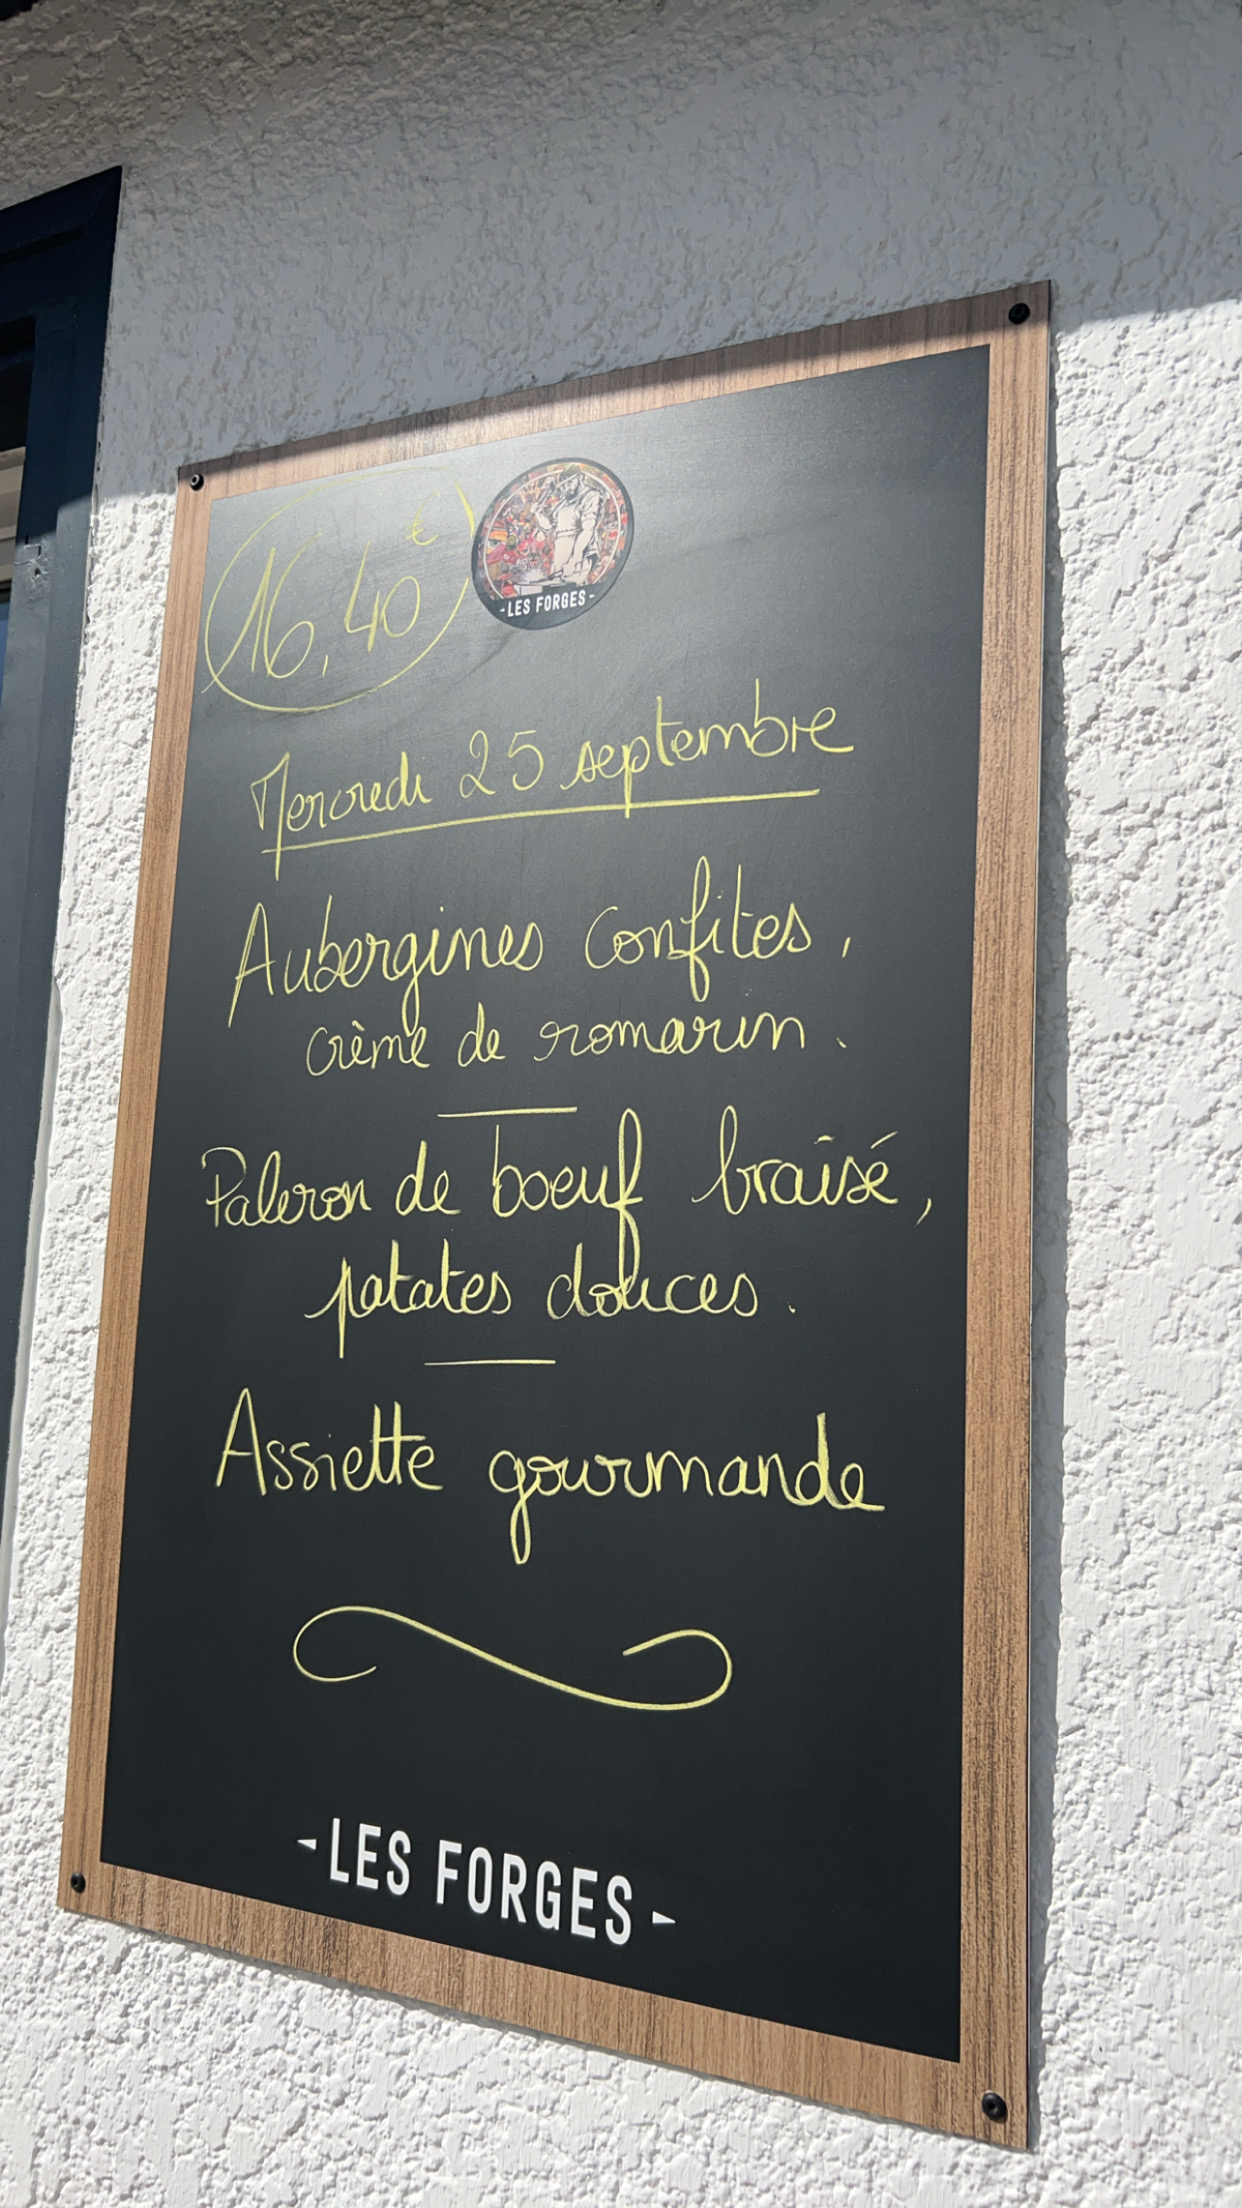 16,40 €
- LES FORGES -
Mercredi 25 septembre
Aubergines confites,
crème de romarin.
Paleron de boeuf braisé,
patates douces.
Assiette gourmande
- LES FORGES -